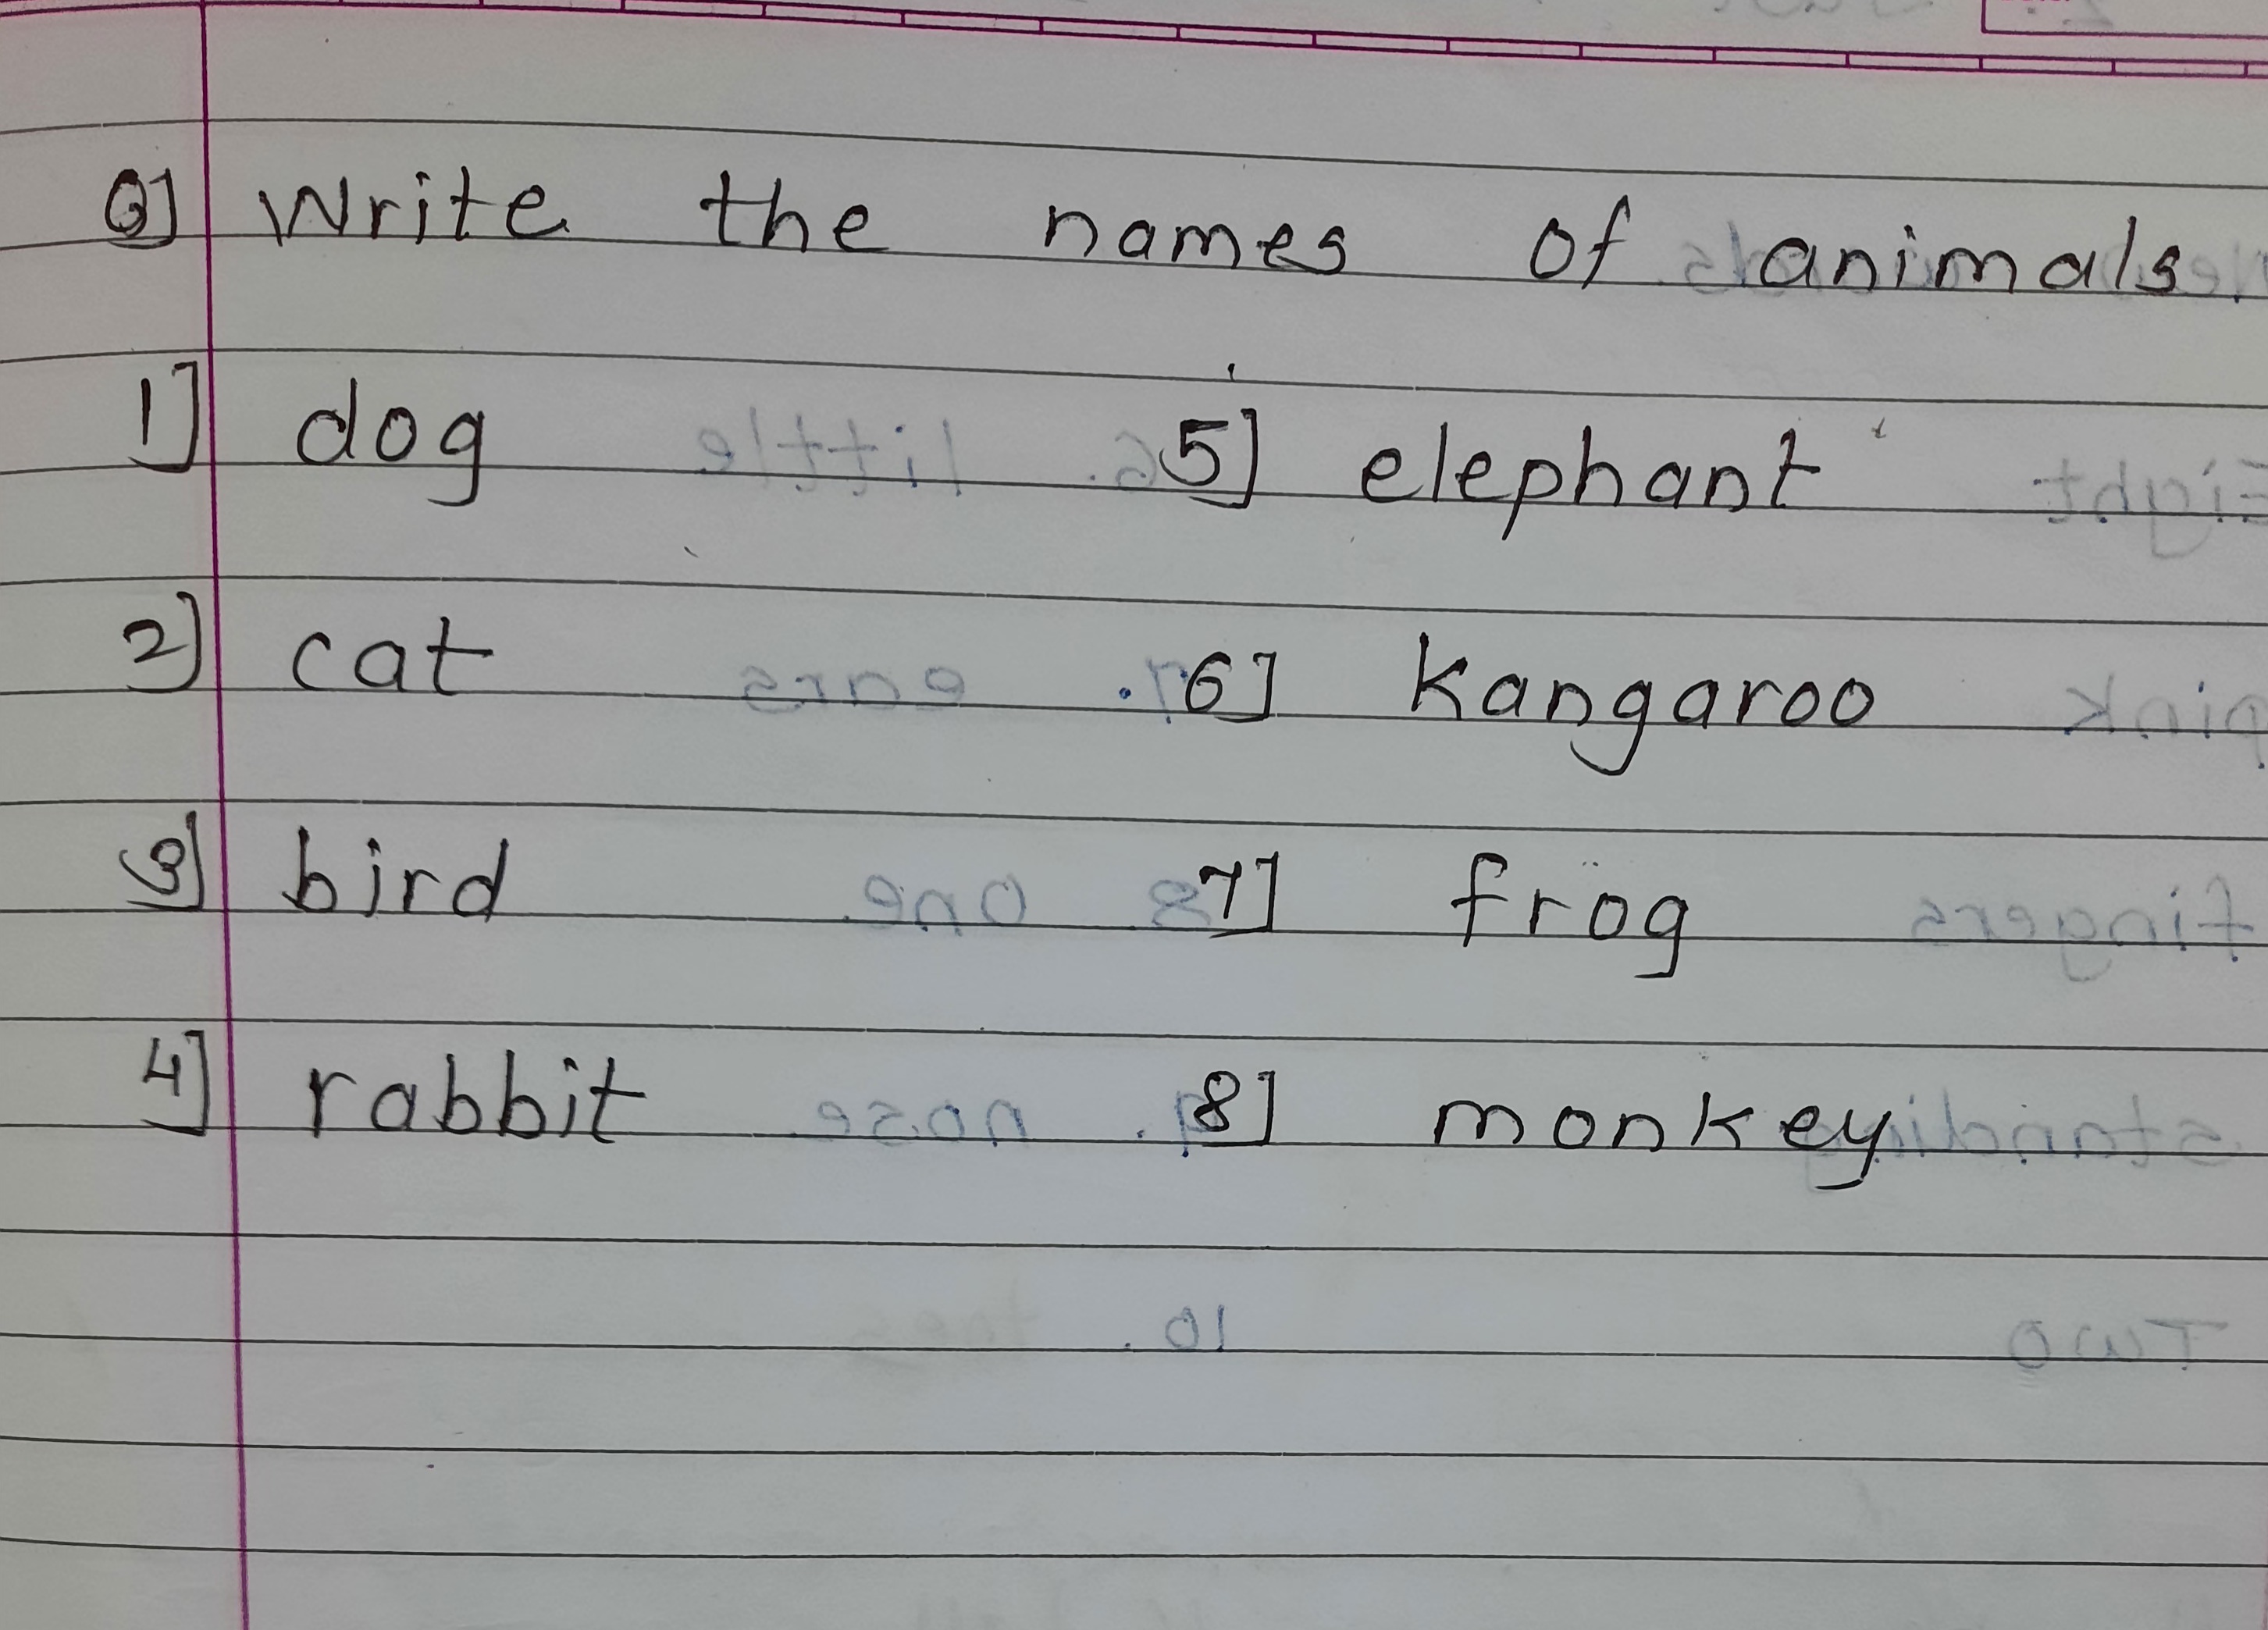 Q] Write the names of animals.
1] dog 5] elephant
2] cat 6] kangaroo
3] bird 7] frog
4] rabbit 8] monkey